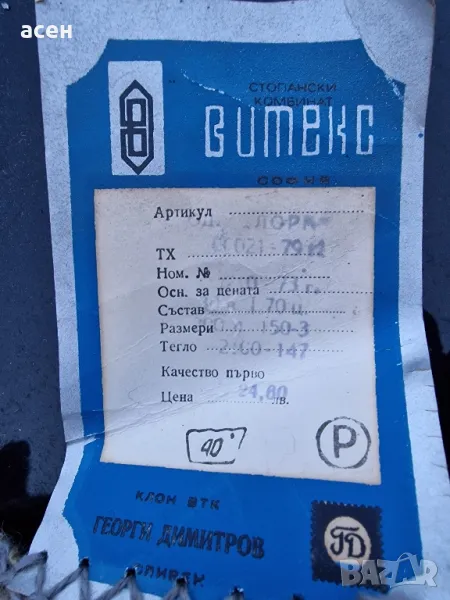 асен
СТОПАНСКИ
КОМБИНАТ
ВИТЕКС
СОФИЯ
Артикул "ЛОРА"
ТХ 79
Ном. №
Осн. за цената
Състав 70
Размери 150-3
Тегло 147
Качество първо
Цена 24,60 лв.
40°
P
КЛОН ВТК
ГЕОРГИ ДИМИТРОВ
СЛИВЕН
ГД
BAZAR